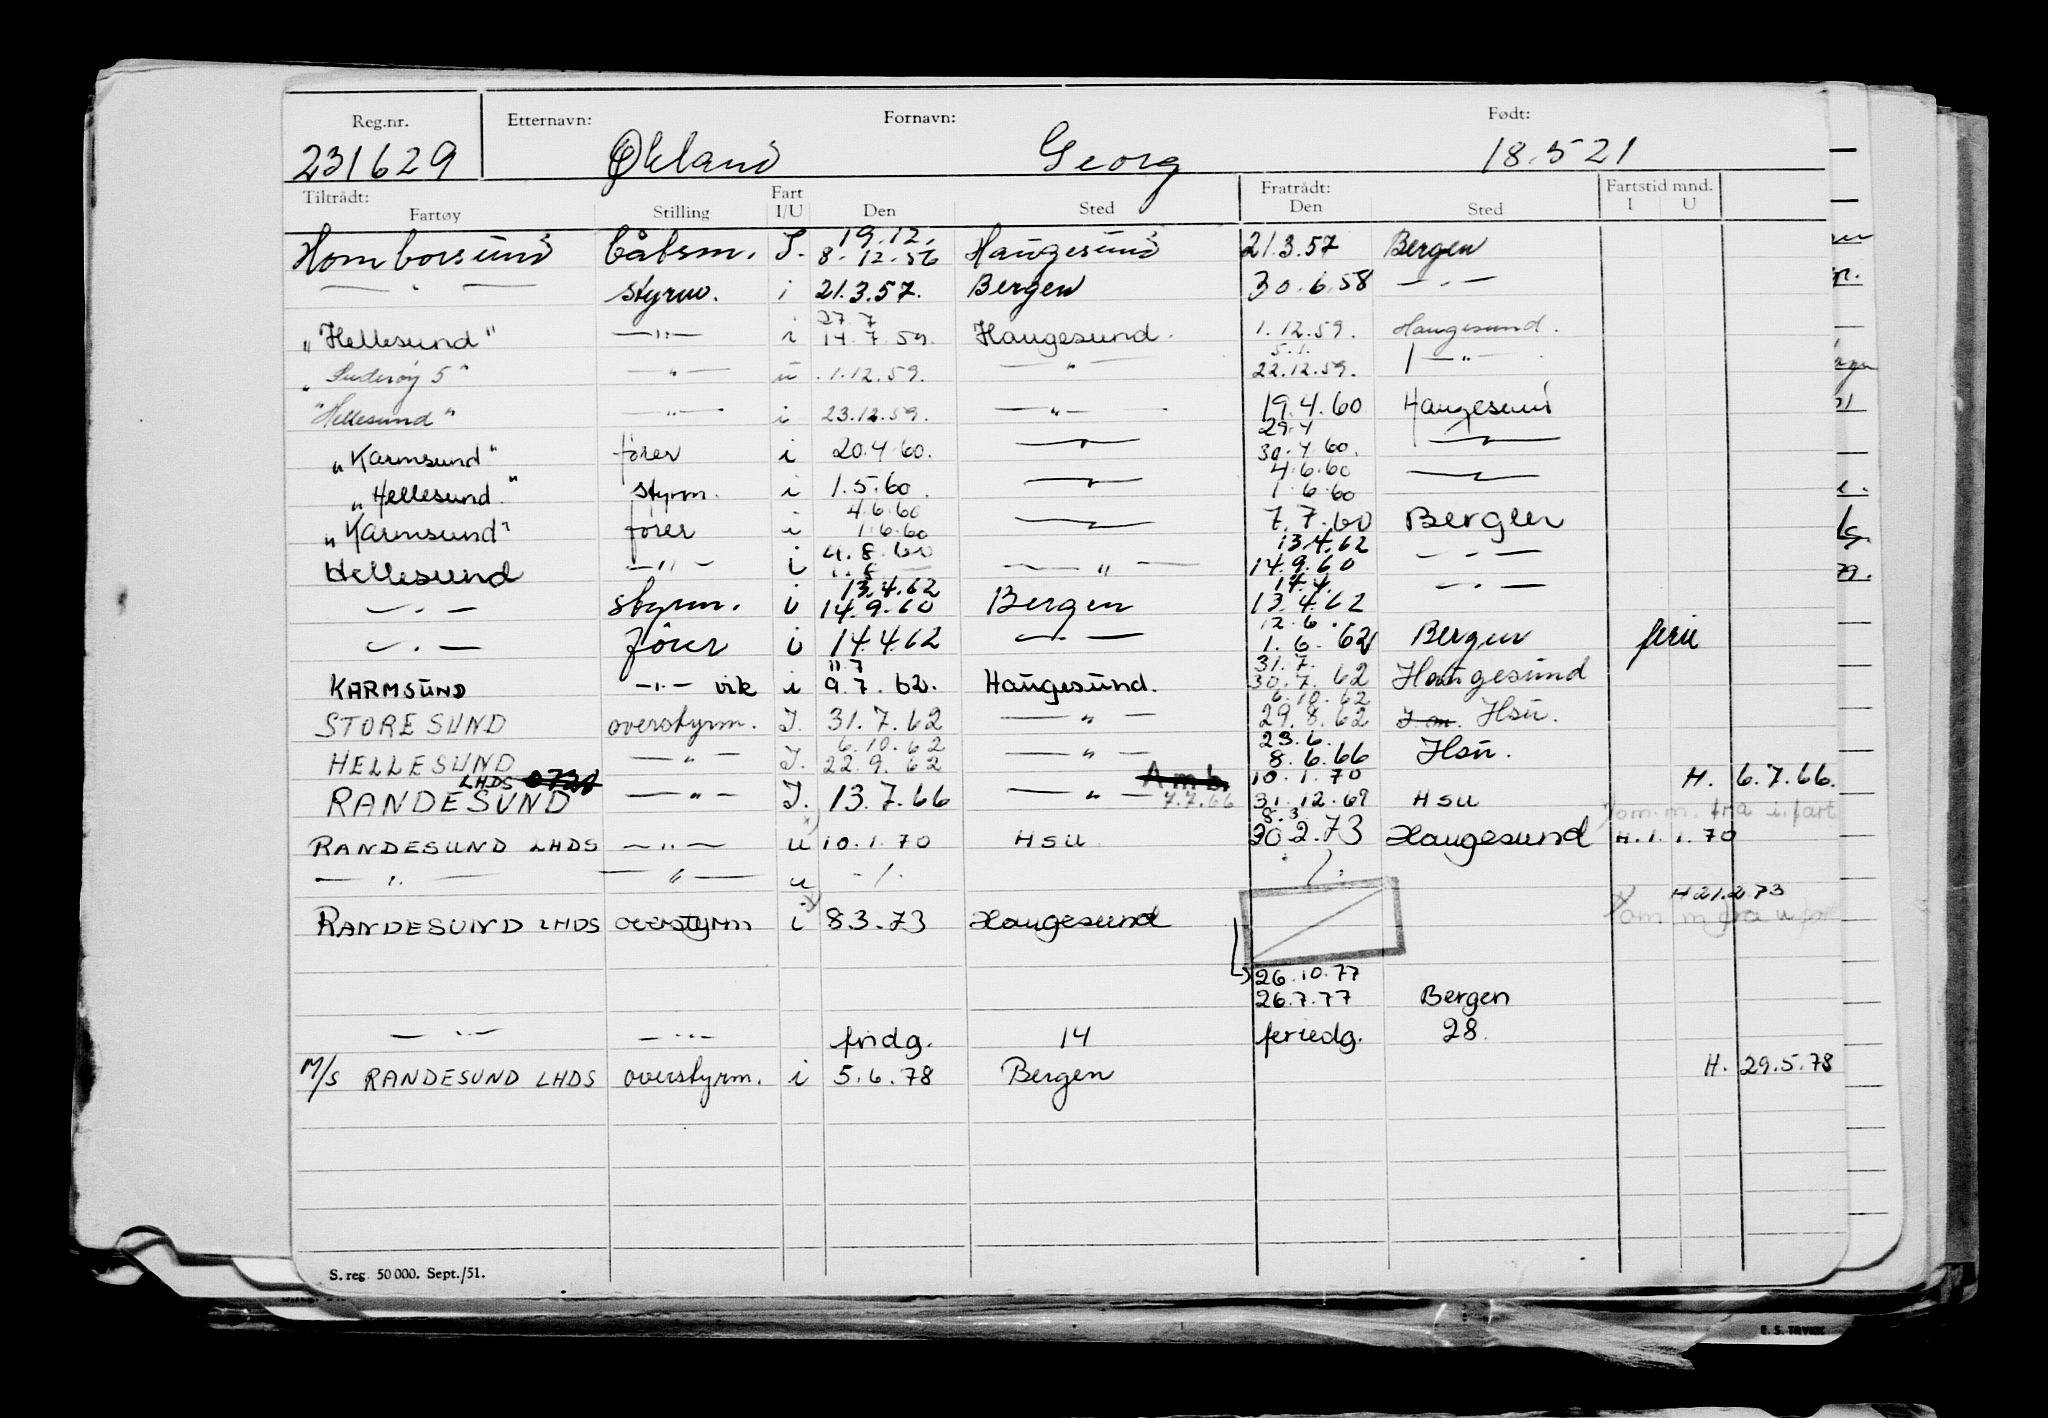 Reg.nr. Etternavn: Fornavn: Født:
231629 Økland Georg 18.5 21
Tiltrådt: Fart Fratrådt: Fartstid mnd.
Fartøy Stilling I/U Den Sted Den Sted I U
19.12.
Homborsund båtsm. I. 8.12.56 Haugesund 21.3.57 Bergen
— " — styrm. i 21.3.57. Bergen 30.6.58 — " —
27.7
"Hellesund" — " — i 14.7.59. Haugesund. 1.12.59. Haugesund.
5.1.
"Suderøy 5" — " — u .1.12.59. — " — 22.12.59. — " —
"Hellesund" — " — i 23.12.59. — " — 19.4.60 Haugesund
29.4
"Karmsund" fører i 20.4.60. — " — 30.4.60. — " —
4.6.60
"Hellesund" styrm. i 1.5.60. — " — 1.6.60 — " —
4.6.60
"Karmsund" fører i 1.6.60 — " — 7.7.60 Bergen
13.4.62
Hellesund — " — i 4.8.60 — " — 14.9.60 — " —
13.4.62 14.4.
— " — styrm. i 14.9.60 Bergen 13.4.62 — " —
12.6.
— " — fører i 14.4.62 — " — 1.6.62 Bergen ferie
11.7 31.7.
KARMSUND — " — vik i 9.7.62. Haugesund. 30.7.62 Haugesund
6.10.62
STORESUND overstyrm. I. 31.7.62 — " — 29.8.62 Hsu.
6.10.62 23.6.
HELLESUND — " — I. 22.9.62 — " — 8.6.66 Hsu.
LHDS A m b. 10.1.70 H. 6.7.66.
RANDESUND — " — I. 13.7.66 — " — 7.7.66 31.12.69 HSU
8.3 fra i. fart
RANDESUND LHDS — " — u 10.1.70 HSU 20.2.73 Haugesund H. 1.1.70
— " — — " — u -/-
H 21.2.73
RANDESUND LHDS overstyrm i 8.3.73 Haugesund
26.10.77
26.7.77 Bergen
— " — — " — fridg. 14 feriedg. 28.
M/S RANDESUND LHDS overstyrm. i 5.6.78 Bergen H. 29.5.78
S. reg 50 000. Sept./51.
E. S. TRYKK